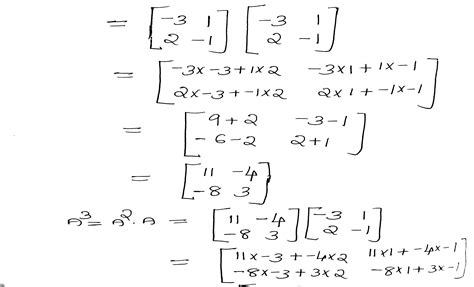 = [-3 1 2 -1] [-3 1 2 -1]
= [-3x-3+1x2 -3x1+1x-1
2x-3+-1x2 2x1+-1x-1]
= [9+2 -3-1
-6-2 2+1]
= [11 -4
-8 3]
A³= A².A = [11 -4 -8 3] [-3 1 2 -1]
= [11x-3+-4x2 11x1+-4x-1
-8x-3+3x2 -8x1+3x-1]